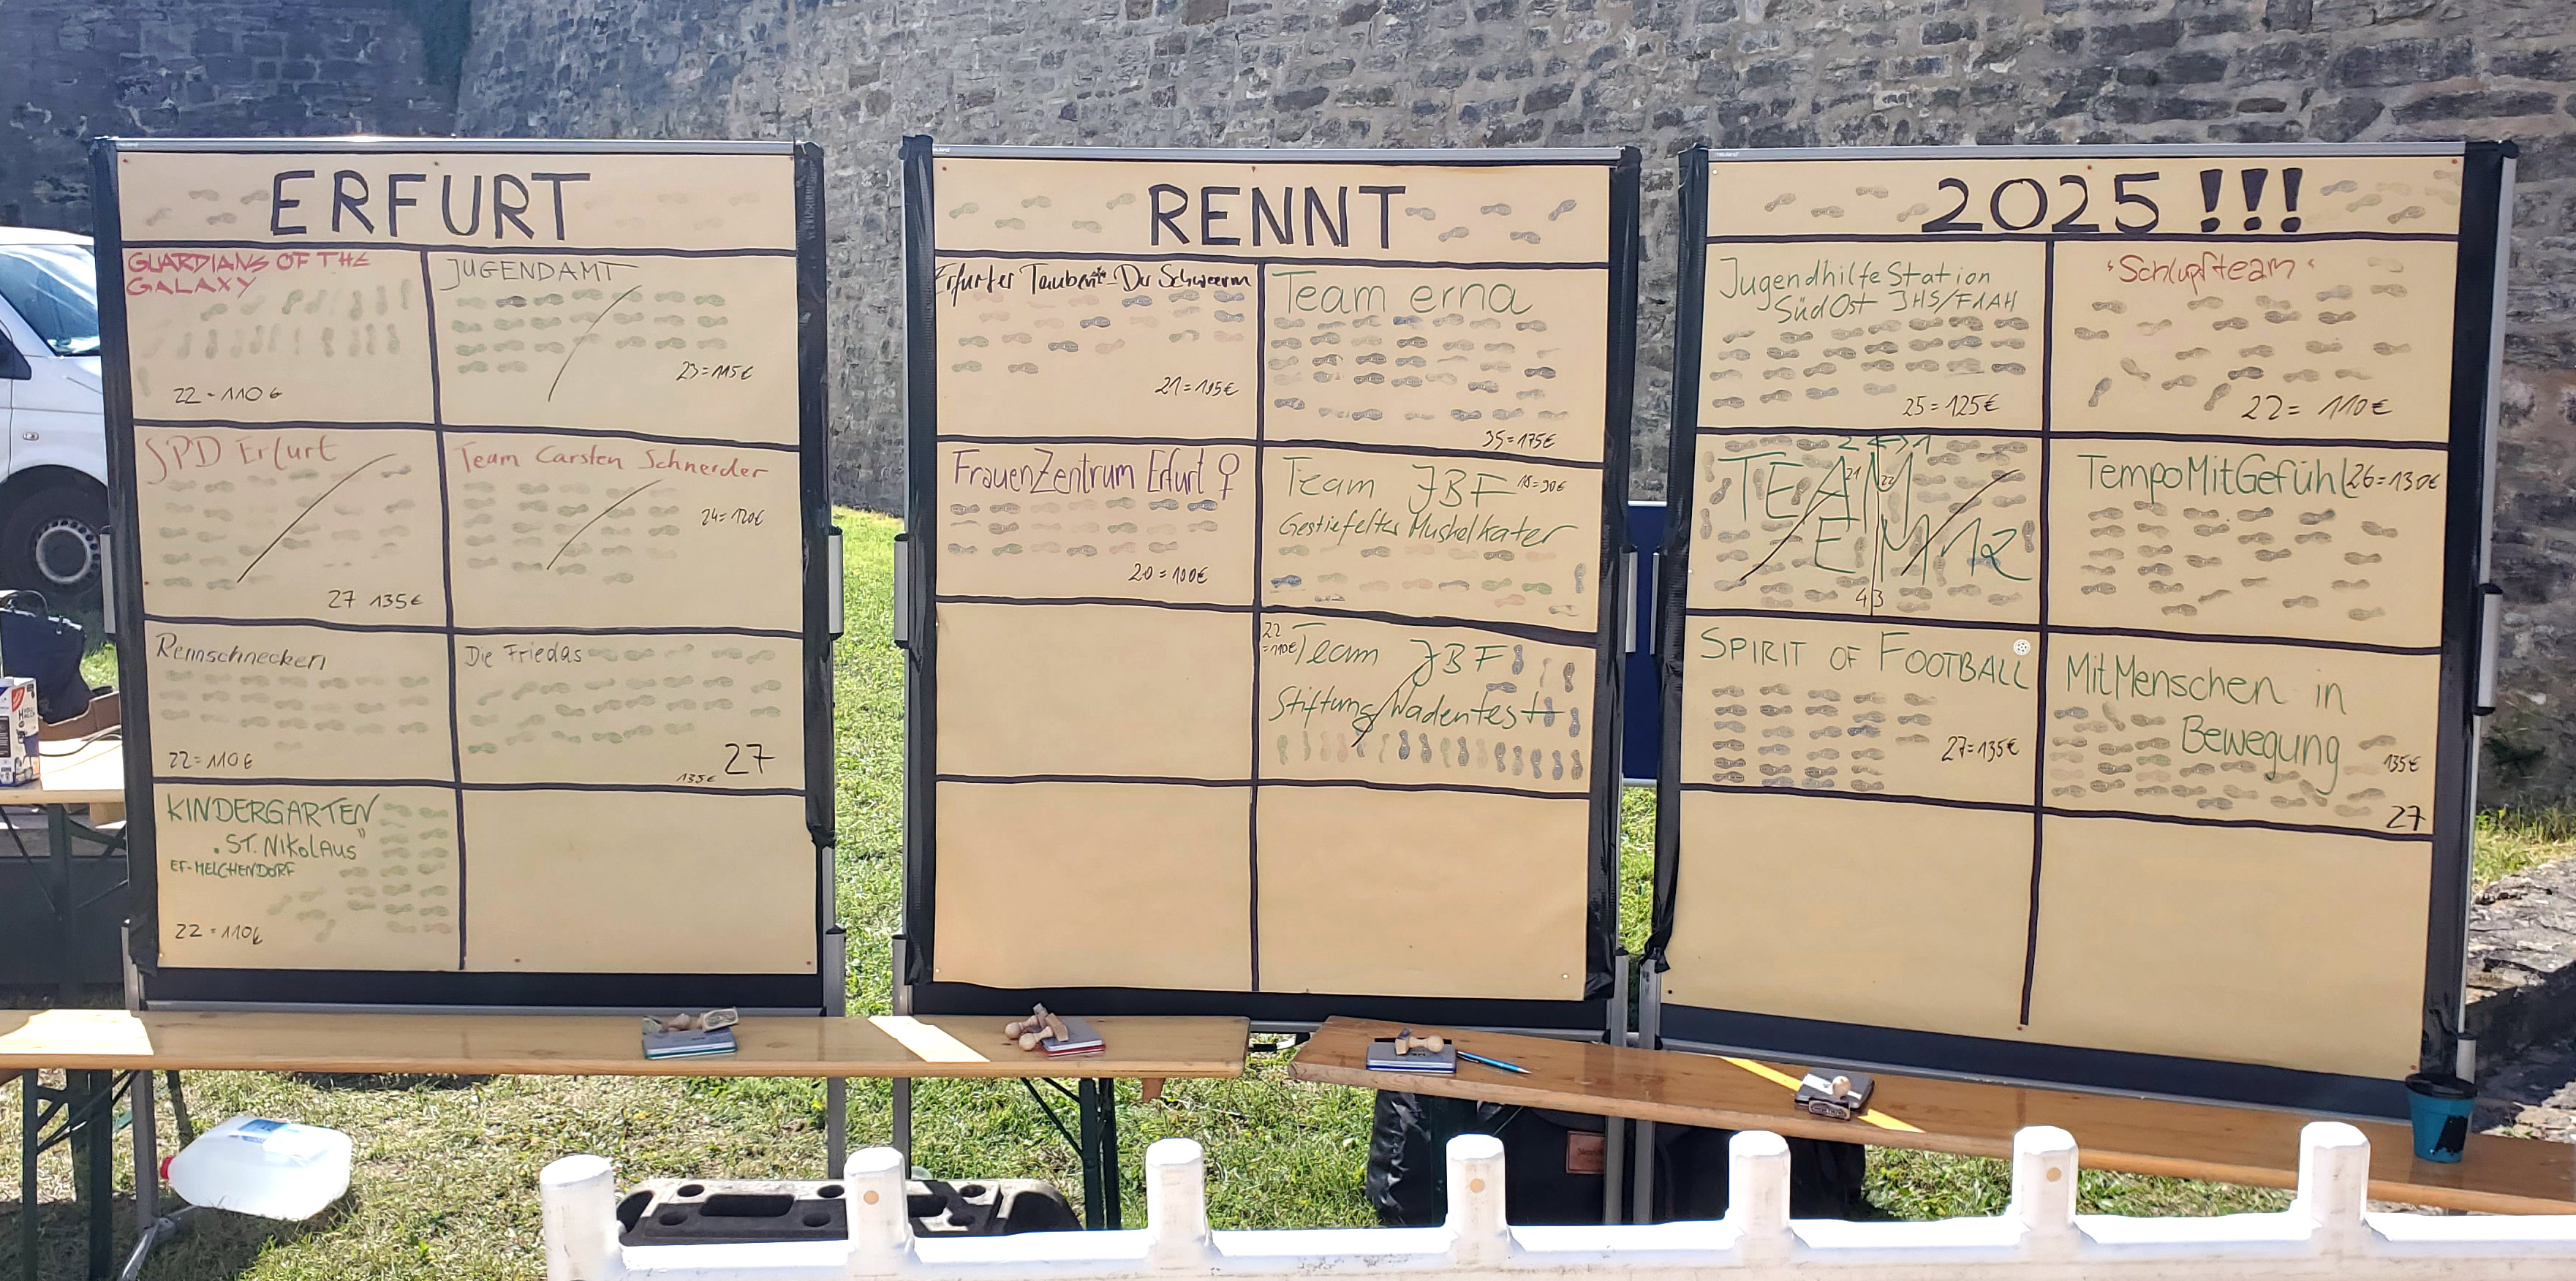 ERFURT
GUARDIANS OF THE
GALAXY
22 = 110 €
JUGENDAMT
23 = 115 €
SPD Erfurt
27 135 €
Team Carsten Schneider
24 = 120 €
Rennschnecken
22 = 110 €
Die Friedas
135 € 27
KINDERGARTEN
"ST. NIKOLAUS"
EF-MELCHENDORF
22 = 110 €
RENNT
Erfurter Tauben*- Der Schwarm
21 = 105 €
Team erna
35 = 175 €
FrauenZentrum Erfurt ♀
20 = 100 €
Team JBF 18 = 90 €
Gestiefelter Muskelkater
22
= 110 € Team JBF
Stiftung Wadentest
2025 !!!
JugendhilfeStation
SüdOst JHS/FIAH
25 = 125 €
"Schlupfteam"
22 = 110 €
2 ↔ 1
TEAM
21 22
EM
43
TempoMitGefühl 26 = 130 €
SPIRIT OF FOOTBALL
27 = 135 €
MitMenschen in
Bewegung
135 €
27